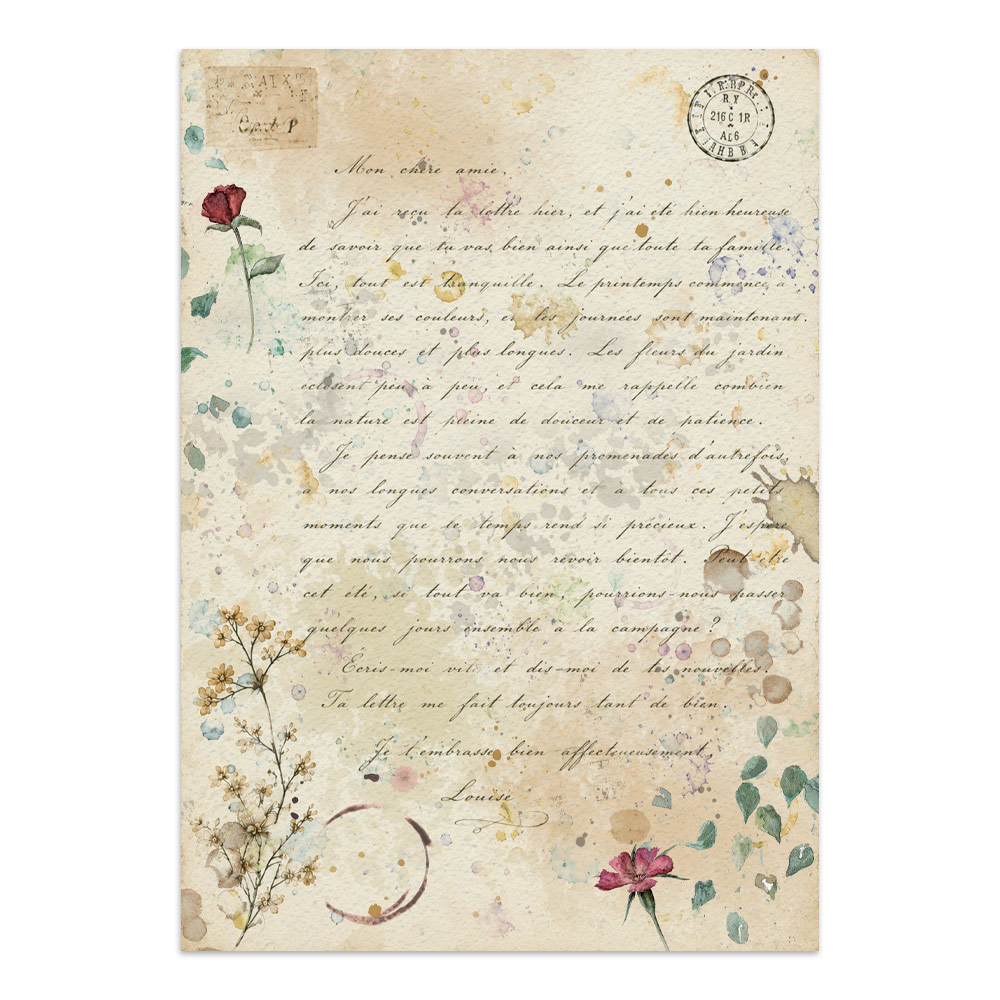 Mon chère amie,
J'ai reçu ta lettre hier, et j'ai été bien heureuse
de savoir que tu vas bien ainsi que toute ta famille.
Ici, tout est tranquille. Le printemps commence à
montrer ses couleurs, et les journées sont maintenant
plus douces et plus longues. Les fleurs du jardin
éclosent peu à peu, et cela me rappelle combien
la nature est pleine de douceur et de patience.
Je pense souvent à nos promenades d'autrefois,
à nos longues conversations et à tous ces petits
moments que le temps rend si précieux. J'espère
que nous pourrons nous revoir bientôt. Peut-être
cet été, si tout va bien, pourrions-nous passer
quelques jours ensemble à la campagne ?
Écris-moi vite et dis-moi de tes nouvelles.
Ta lettre me fait toujours tant de bien.
Je t'embrasse bien affectueusement,
Louise
RY
216C 1R